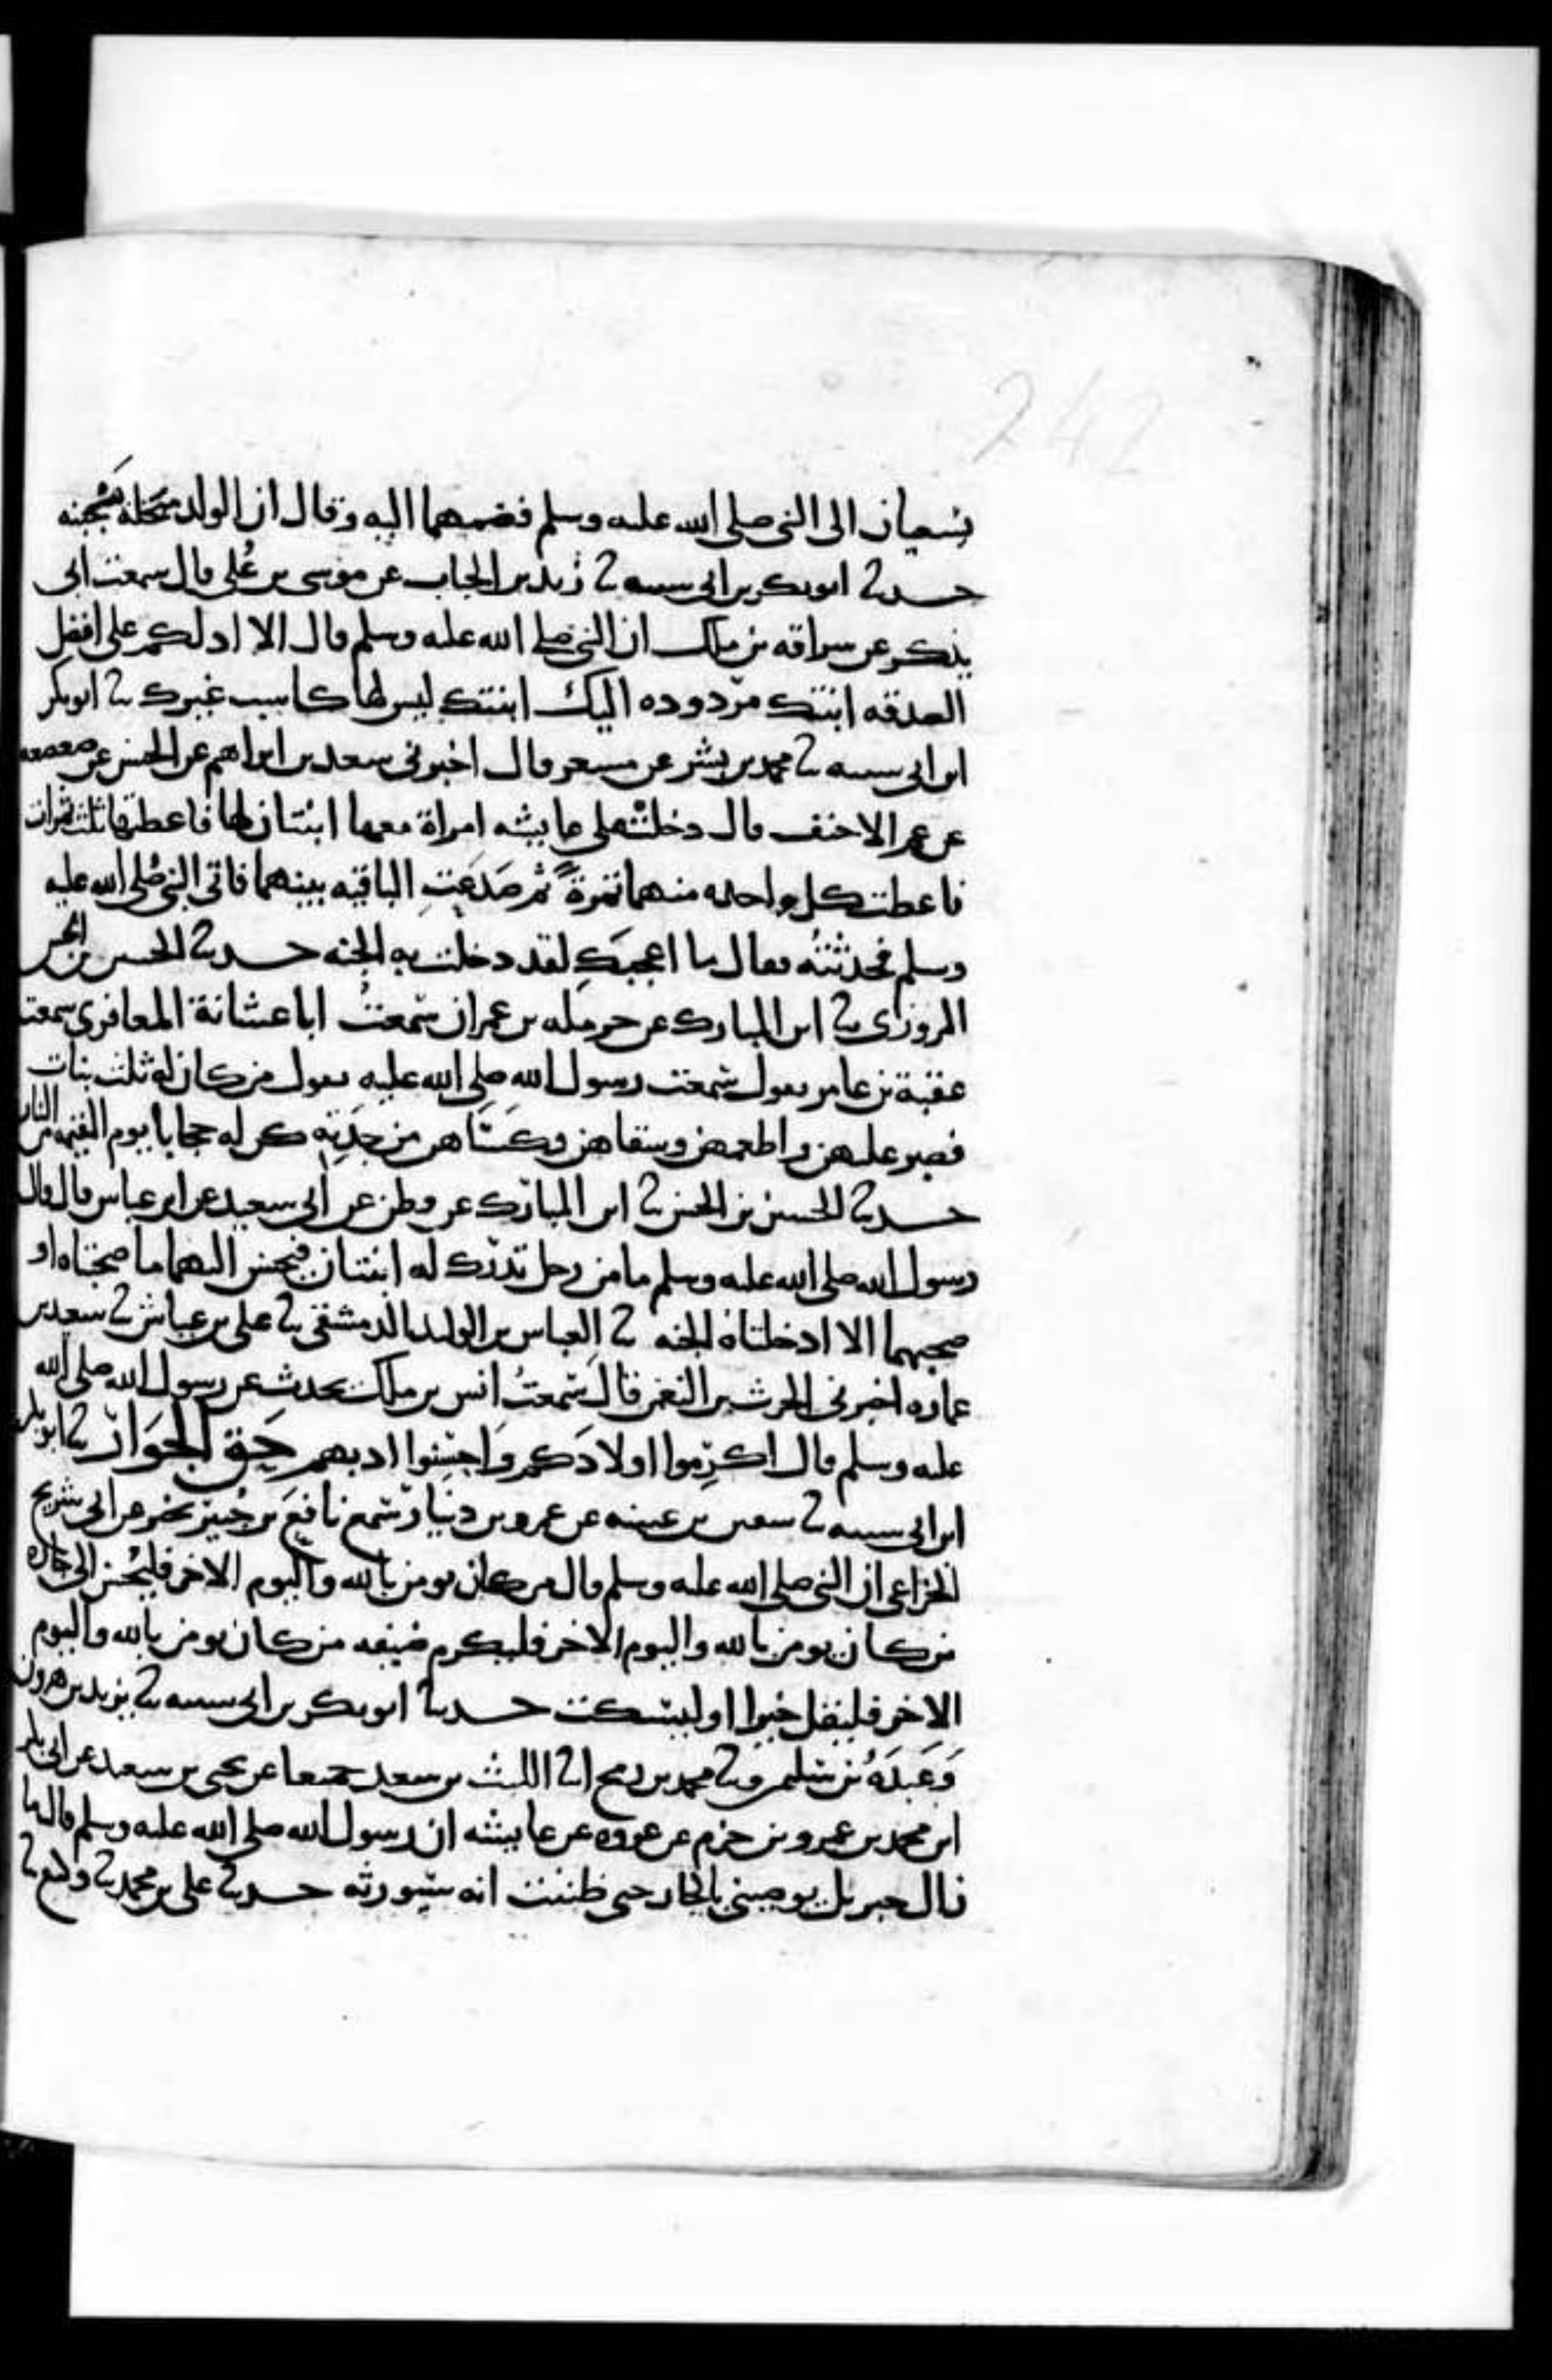 242
يسعيان الى النبي صلى الله عليه وسلم فضمهما اليه وقال ان الولد مبخلة مجبنه
حدثنا ابو بكر بن ابي شيبه نا زيد بن الحباب عن موسى بن عُلي قال سمعت ابي
يذكر عن سراقه بن ملك ان النبي صلى الله عليه وسلم قال الا ادلكم على افضل
الصدقه ابنتك مردوده اليك ليس لها كاسب غيرك نا ابو بكر
ابن ابي شيبه نا محمد بن بشر عن مسعر قال اخبرني سعد بن ابراهيم عن الحسن عن صعصعه
عم الاحنف قال دخلت على عايشه امراة معها ابنتان لها فاعطتها ثلث تمرات
فاعطت كل واحده منهما تمرةً ثم صَدَعَتِ الباقيه بينهما فاتى النبي صلى الله عليه
وسلم فحدثتهُ فقال ما اعجبكِ لقد دخلت به الجنه حدثنا الحسين بن الحسن
المروزي نا ابن المبارك عن حرمله بن عمران سمعتُ ابا عشانة المعافري سمعت
عقبة بن عامر يقول سمعت رسول الله صلى الله عليه يقول من كان له ثلث بنات
فصبر عليهن واطعمهن وسقاهن وكساهن من جِدَتِهِ كن له حجابا يوم القيمه من النار
حدثنا الحسين بن الحسن نا ابن المبارك عن فطر عن ابي سعيد عن ابن عباس قال قال
رسول الله صلى الله عليه وسلم ما من رجل تدرك له ابنتان فيحسن اليهما ما صحبتاه او
صحبهما الا ادخلتاه الجنه نا العباس بن الوليد الدمشقي نا علي بن عياش نا سعيد بن
عماره اخبرني الحرث بن النعمن قال سمعتُ انس بن ملك يحدث عن رسول الله صلى الله
عليه وسلم قال اكرِموا اولادَكم وَاحسِنوا ادبهم حَق الجوَار نا ابو بكر
ابن ابي شيبه نا سفين بن عيينه عن عمرو بن دينار سمع نافعَ بن جُبير يخبر عن ابي شريح
الخزاعي ان النبي صلى الله عليه وسلم قال من كان يومن بالله واليوم الاخر فليُحسن الى جاره
من كان يومن بالله واليوم الاخر فليكرم ضيفه من كان يومن بالله واليوم
الاخر فليقل خيرا او ليسكت حدثنا ابو بكر بن ابي شيبه نا يزيد بن هرون
وَعَبدَهُ بن سليمن ونا محمد بن رمح انا الليث بن سعد جميعا عن يحيى بن سعيد عن ابي بكر
ابن محمد بن عمرو بن حزم عن عروه عن عايشه ان رسول الله صلى الله عليه وسلم قال ما
زال جبريل يوصيني بالجار حتى ظننت انه سيورثه حدثنا علي بن محمد نا وكيع نا